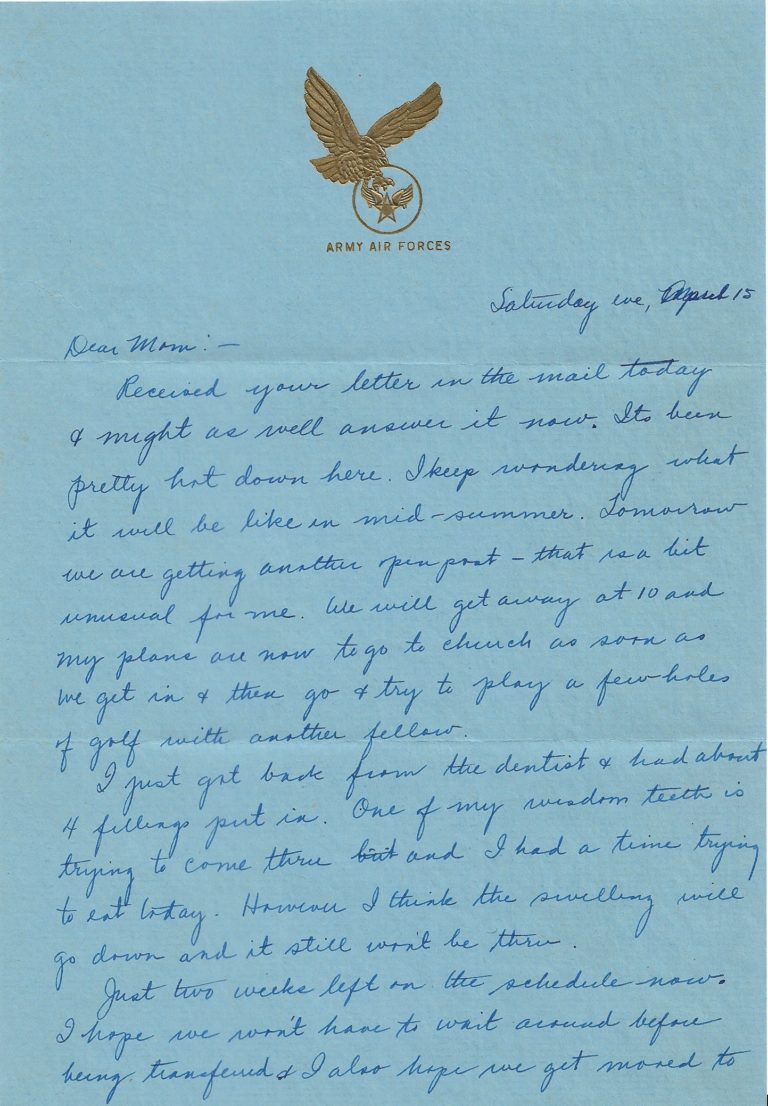 ARMY AIR FORCES
Saturday eve, April 15
Dear Mom: —
Received your letter in the mail today
& might as well answer it now. Its been
pretty hot down here. I keep wondering what
it will be like in mid-summer. Tomorrow
we are getting another open post – that is a bit
unusual for me. We will get away at 10 and
my plans are now to go to church as soon as
we get in & then go & try to play a few holes
of golf with another fellow.
I just got back from the dentist & had about
4 fillings put in. One of my wisdom teeth is
trying to come thru but and I had a time trying
to eat today. However I think the swelling will
go down and it still won't be thru.
Just two weeks left on the schedule now.
I hope we won't have to wait around before
being transferred & I also hope we get moved to